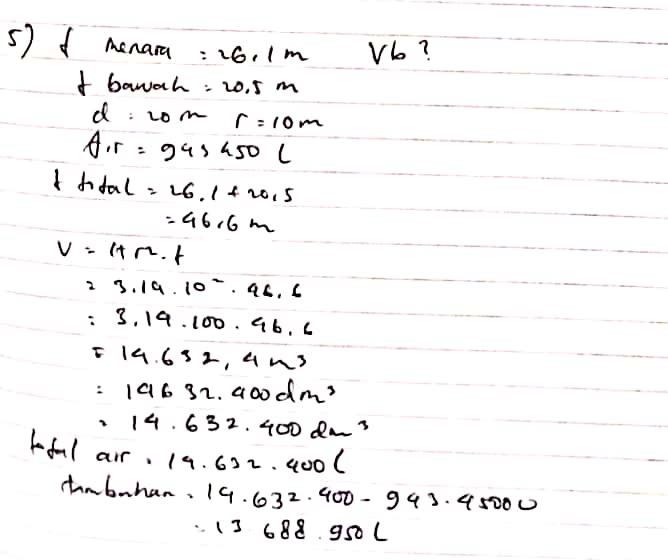 5) t menara : 26,1 m Vb ?
t bawah : 20,5 m
d : 20 m r = 10 m
Air = 943 450 L
t total = 26,1 + 20,5
= 46,6 m
V = πr². t
= 3,14 . 10² . 46,6
= 3,14 . 100 . 46,6
= 14.632,4 m³
= 14632.400 dm³
= 14.632.400 dm³
total air = 14.632.400 L
tambahan = 14.632.400 - 943.4500
= 13 688.950 L